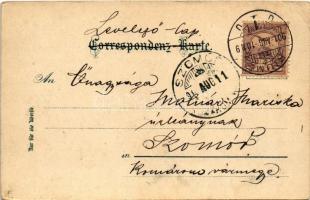 Levelező-Lap.
Correspondenz-Karte.
An Őnagysága
Molnár Mariska
úrleánynak
in Szomód
Komárom vármegye
Nur für die Adresse
SZOMÓD
AUG 11